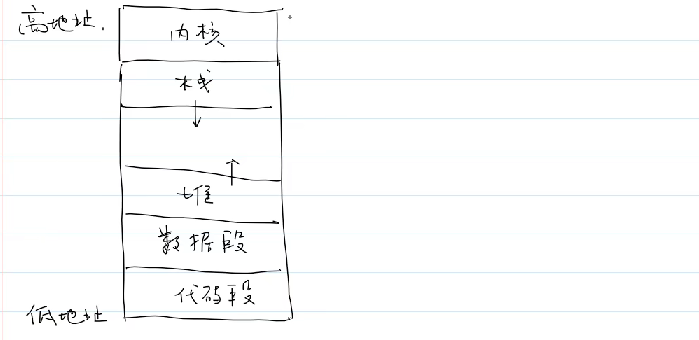 高地址.
内核
栈
堆
数据段
代码段
低地址